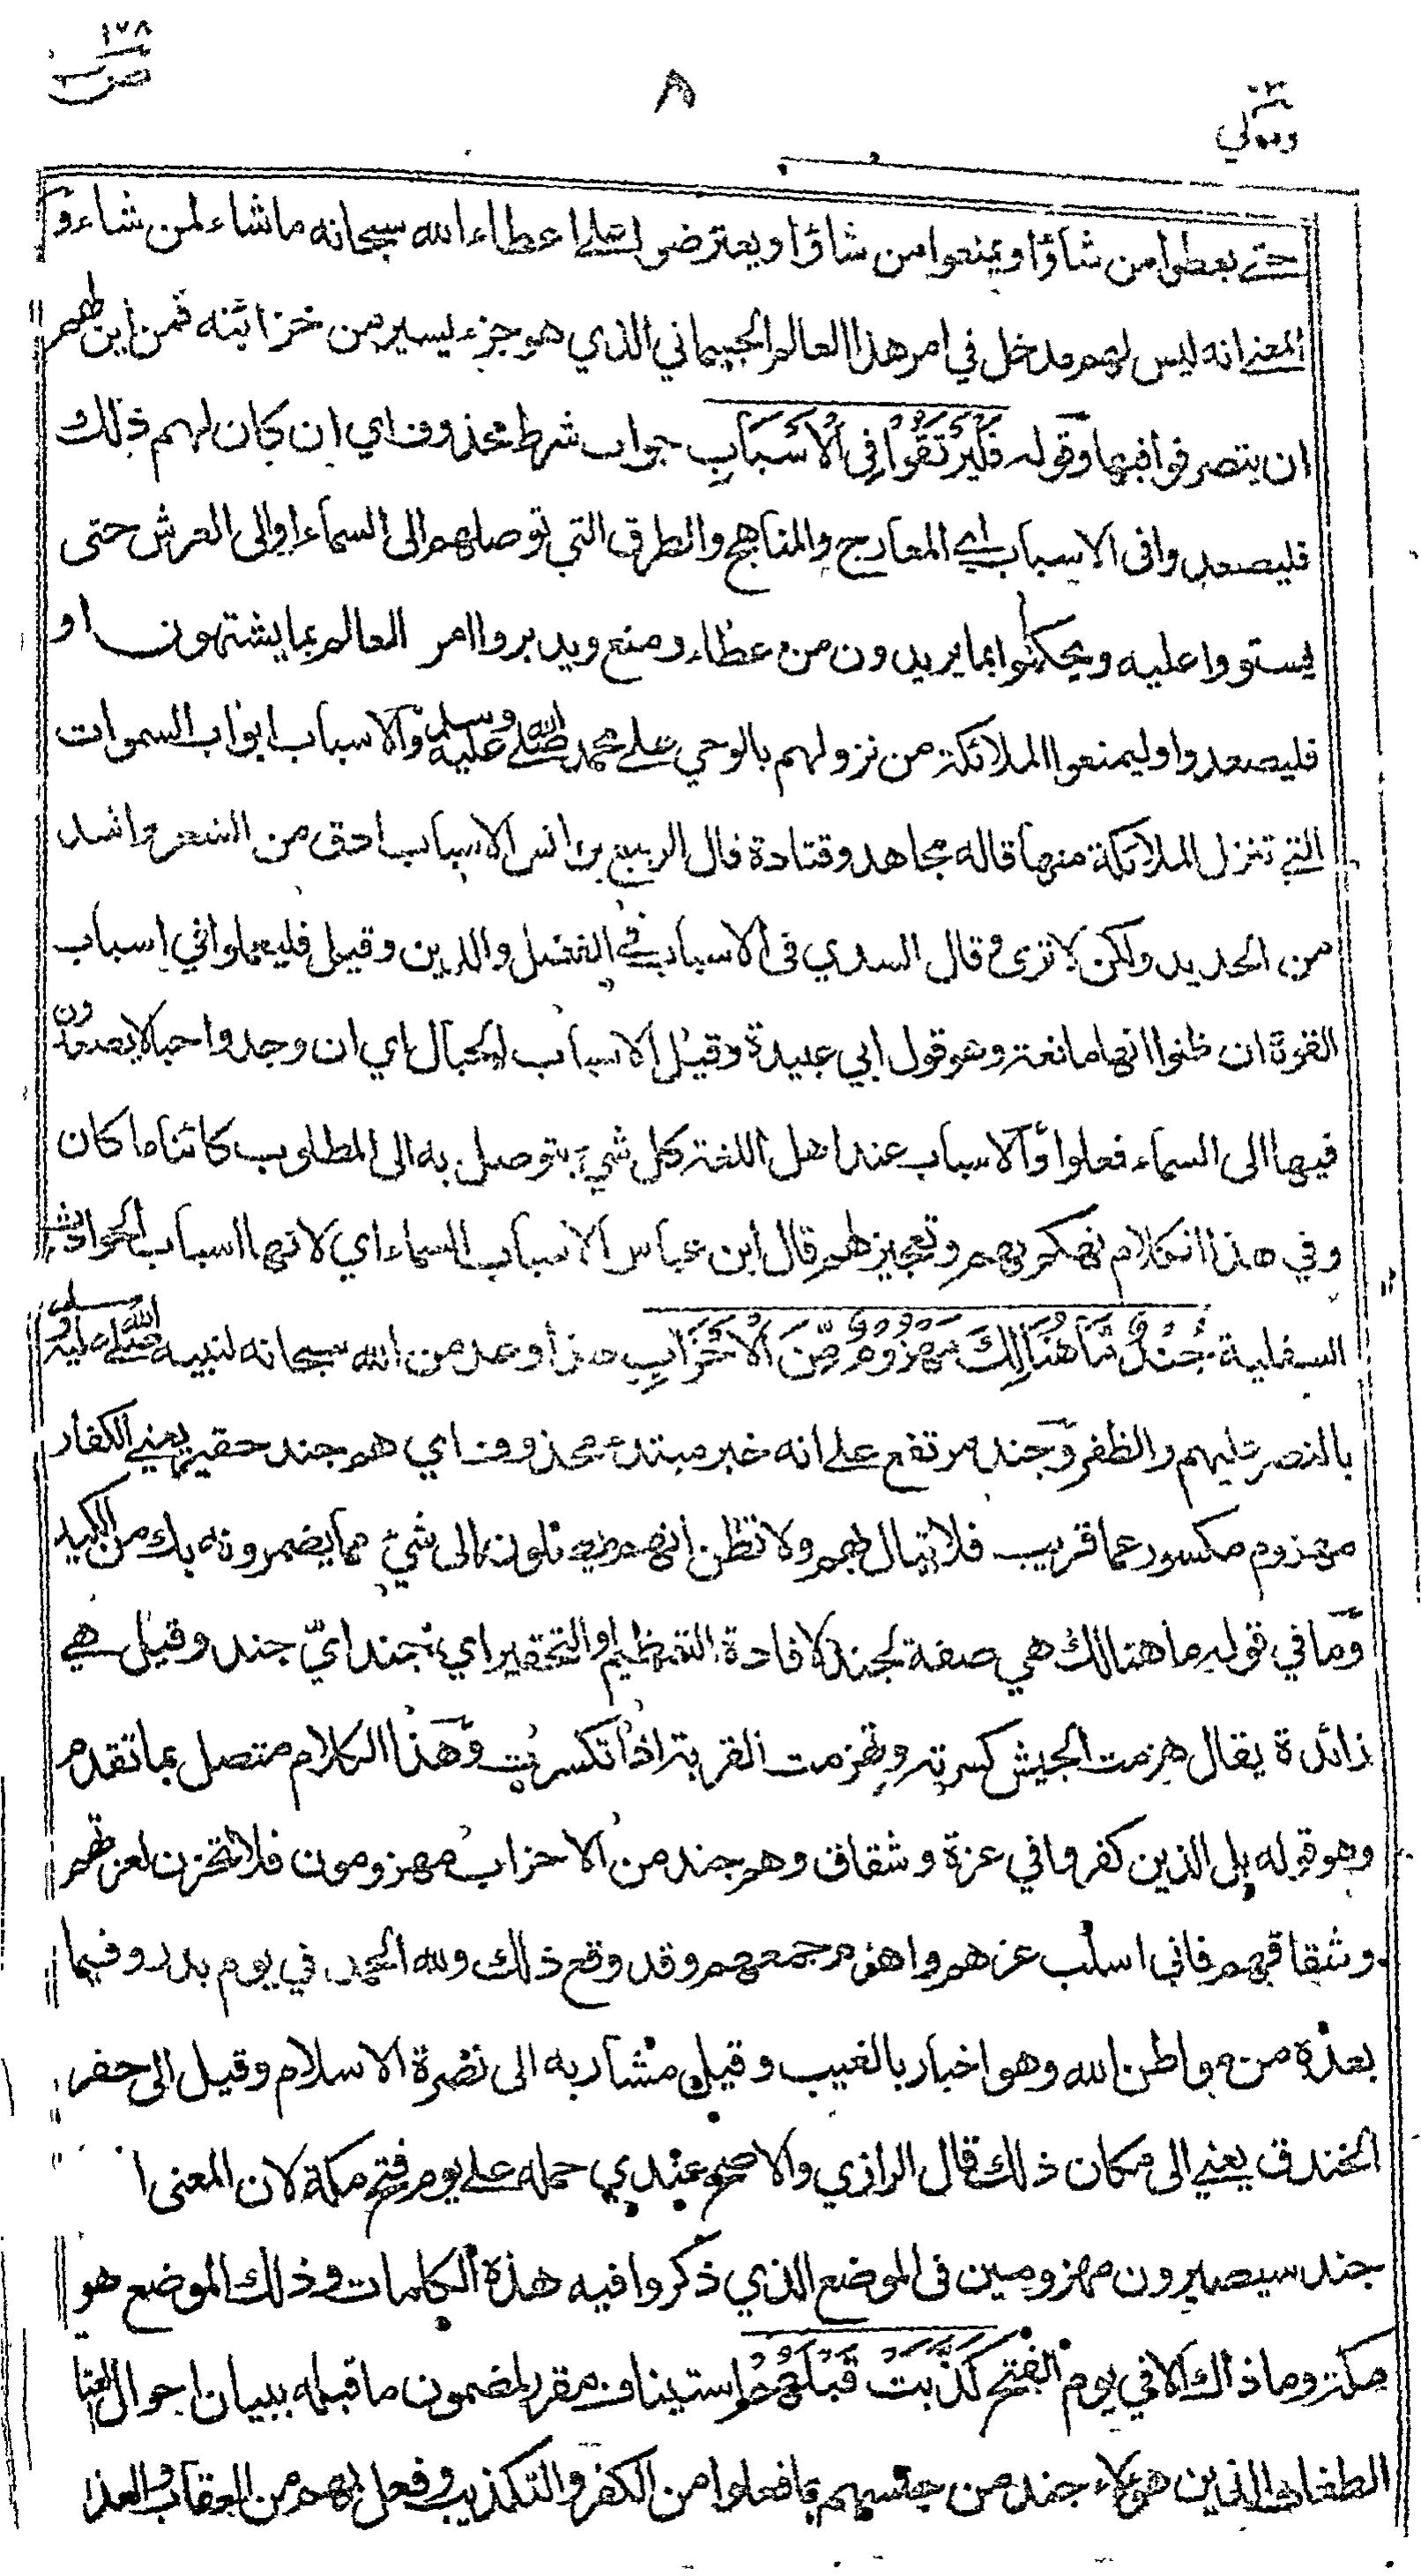 ١٧٨
ص
٨
ومالي
حتى يعطوا من شاؤا ويمنعوا من شاؤا ويعترضوا على اعطاء الله سبحانه ما شاء لمن شاء و
المعنى انه ليس لهم مدخل في امر هذا العالم الجسماني الذي هو جزء يسير من خزائنه فمن اين لهم
ان يتصرفوا فيها وقوله فَلْيَرْتَقُوْا فِي الْاَسْبَابِ جواب شرط محذوف اي ان كان لهم ذلك
فليصعدوا فى الاسباب اي المعارج والمناهج والطرق التي توصلهم الى السماء او الى العرش حتى
يستووا عليه ويحكموا بما يريدون من عطاء ومنع ويدبروا امر العالم بما يشتهون او
فليصعدوا وليمنعوا الملائكة من نزولهم بالوحي على محمد صلى الله عليه وسلم والاسباب ابواب السموات
التي تنزل الملائكة منها قاله مجاهد وقتادة قال الربيع بن انس الاسباب ادق من الشعر واشد
من الحديد ولكن لا ترى وقال السدي فى الاسباب في الفضل والدين وقيل فليعملوا في اسباب
القوة ان ظنوا انها مانعة وهو قول ابي عبيدة وقيل الاسباب الحبال اي ان وجدوا حبالا يصعدون
فيها الى السماء فعلوا والاسباب عند اهل اللغة كل شيء يتوصل به الى المطلوب كائنا ما كان
وفي هذا الكلام تهكم بهم وتعجيز لهم قال ابن عباس الاسباب السماء اي لانها اسباب الحوادث
السفلية جُنْدٌ مَّا هُنَالِكَ مَهْزُوْمٌ مِّنَ الْاَحْزَابِ هذا وعد من الله سبحانه لنبيه صلى الله عليه وسلم
بالنصر عليهم والظفر وجند مرتفع على انه خبر مبتدء محذوف اي هم جند حقير يعني الكفار
مهزوم مكسور عما قريب فلا تبال بهم ولا تظن انهم يصلون الى شيء مما يضمرونه بك من الكيد
وما في قوله ما هنالك هي صفة لجند لافادة التعظيم او التحقير اي جند اي جند وقيل هي
زائدة يقال هزمت الجيش كسرته وتهزمت القربة اذا تكسرت وهذا الكلام متصل بما تقدم
وهو قوله بل الذين كفروا في عزة وشقاق وهم جند من الاحزاب مهزومون فلا تحزن لعزتهم
وشقاقهم فاني اسلب عزهم واهزم جمعهم وقد وقع ذلك ولله الحمد في يوم بدر وفيما
بعده من مواطن الله وهو اخبار بالغيب وقيل مشار به الى نصرة الاسلام وقيل الى حفر
الخندق يعني الى مكان ذلك قال الرازي والاصح عندي حمله على يوم فتح مكة لان المعنى ا
جند سيصيرون مهزومين فى الموضع الذي ذكروا فيه هذه الكلمات وذلك الموضع هو
مكة وما ذاك الا في يوم الفتح كَذَّبَتْ قَبْلَهُمْ استيناف مقرر لمضمون ما قبله ببيان احوال العتا
الطغاة الذين هؤلاء جند من جنسهم بما فعلوا من الكفر والتكذيب وفعل بهم من العقاب والعذا